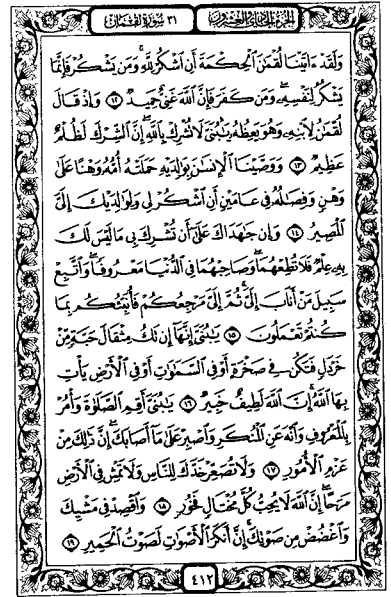 الجزء الحادي والعشرون ٣١ سورة لقمان
وَلَقَدْ ءَاتَيْنَا لُقْمَٰنَ ٱلْحِكْمَةَ أَنِ ٱشْكُرْ لِلَّهِۚ وَمَن يَشْكُرْ فَإِنَّمَا
يَشْكُرُ لِنَفْسِهِۦۖ وَمَن كَفَرَ فَإِنَّ ٱللَّهَ غَنِىٌّ حَمِيدٌ ١٢ وَإِذْ قَالَ
لُقْمَٰنُ لِٱبْنِهِۦ وَهُوَ يَعِظُهُۥ يَٰبُنَىَّ لَا تُشْرِكْ بِٱللَّهِۖ إِنَّ ٱلشِّرْكَ لَظُلْمٌ
عَظِيمٌ ١٣ وَوَصَّيْنَا ٱلْإِنسَٰنَ بِوَٰلِدَيْهِ حَمَلَتْهُ أُمُّهُۥ وَهْنًا عَلَىٰ
وَهْنٍ وَفِصَٰلُهُۥ فِى عَامَيْنِ أَنِ ٱشْكُرْ لِى وَلِوَٰلِدَيْكَ إِلَىَّ
ٱلْمَصِيرُ ١٤ وَإِن جَٰهَدَاكَ عَلَىٰٓ أَن تُشْرِكَ بِى مَا لَيْسَ لَكَ
بِهِۦ عِلْمٌ فَلَا تُطِعْهُمَاۖ وَصَاحِبْهُمَا فِى ٱلدُّنْيَا مَعْرُوفًاۖ وَٱتَّبِعْ
سَبِيلَ مَنْ أَنَابَ إِلَىَّۚ ثُمَّ إِلَىَّ مَرْجِعُكُمْ فَأُنَبِّئُكُم بِمَا
كُنتُمْ تَعْمَلُونَ ١٥ يَٰبُنَىَّ إِنَّهَآ إِن تَكُ مِثْقَالَ حَبَّةٍ مِّنْ
خَرْدَلٍ فَتَكُن فِى صَخْرَةٍ أَوْ فِى ٱلسَّمَٰوَٰتِ أَوْ فِى ٱلْأَرْضِ يَأْتِ
بِهَا ٱللَّهُۚ إِنَّ ٱللَّهَ لَطِيفٌ خَبِيرٌ ١٦ يَٰبُنَىَّ أَقِمِ ٱلصَّلَوٰةَ وَأْمُرْ
بِٱلْمَعْرُوفِ وَٱنْهَ عَنِ ٱلْمُنكَرِ وَٱصْبِرْ عَلَىٰ مَآ أَصَابَكَۖ إِنَّ ذَٰلِكَ مِنْ
عَزْمِ ٱلْأُمُورِ ١٧ وَلَا تُصَعِّرْ خَدَّكَ لِلنَّاسِ وَلَا تَمْشِ فِى ٱلْأَرْضِ
مَرَحًاۖ إِنَّ ٱللَّهَ لَا يُحِبُّ كُلَّ مُخْتَالٍ فَخُورٍ ١٨ وَٱقْصِدْ فِى مَشْيِكَ
وَٱغْضُضْ مِن صَوْتِكَۚ إِنَّ أَنكَرَ ٱلْأَصْوَٰتِ لَصَوْتُ ٱلْحَمِيرِ ١٩
٤١٢